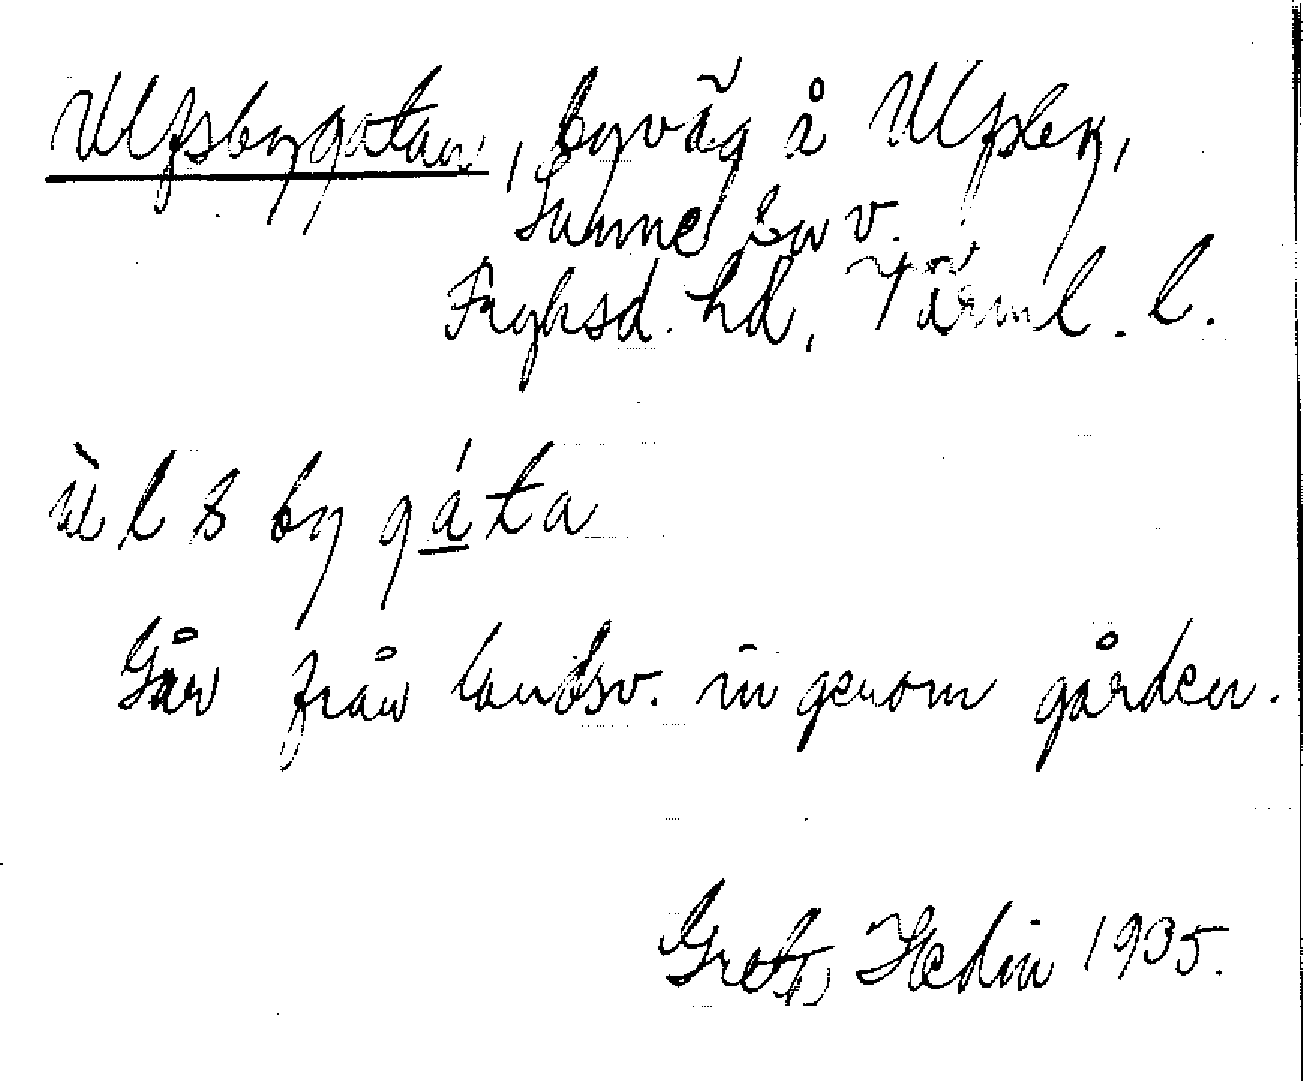 Ulfsbygatan, byväg å Ulfsby,
Sunne sn v.
Fryksd. hd, Värml. l.
ùlsbygáta
Går från landsv. in genom gården.
Greta Hedin 1935.